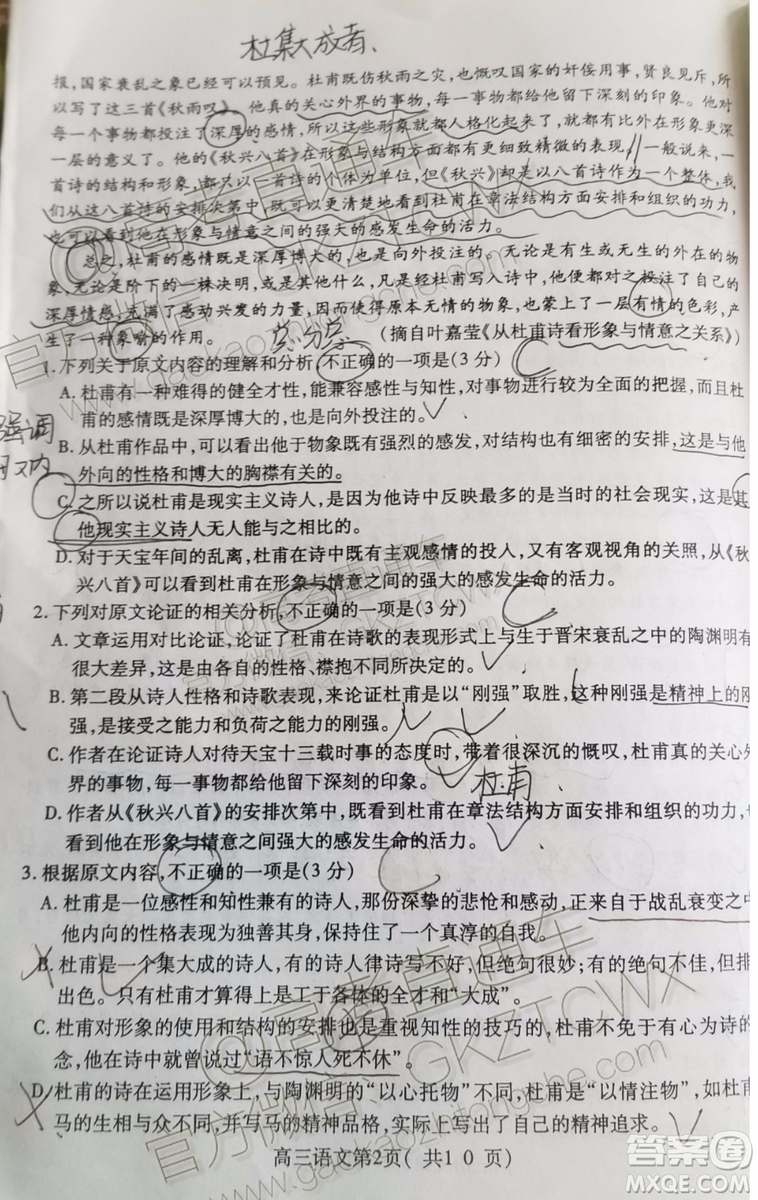 杜集大成者、
报,国家衰乱之象已经可以预见。杜甫既伤秋雨之灾,也慨叹国家的奸佞用事,贤良见斥,所
以写了这三首《秋雨叹》。他真的关心外界的事物,每一事物都给他留下深刻的印象。他对
每一个事物都投注了深厚的感情,所以这些形象就人格化起来了,就都有比外在形象更深
一层的意义了。他的《秋兴八首》在形象与结构方面都有更细致精微的表现。一般说来,一
首诗的结构和形象,仅以一首诗的个体为单位,但《秋兴》却是以八首诗作为一个整体,我
们从这八首诗的安排次第中,既可以更清楚地看到杜甫在章法结构方面安排和组织的功力,
也可以看到他在形象与情意之间的强大的感发生命的活力。
总之,杜甫的感情既是深厚博大的,也是向外投注的。无论是有生或无生的外在的物
象,无论是阶下的一株决明,或其他什么,凡是经杜甫写入诗中,就因他对之投注了自己的
深厚情感,充满了感动兴发的力量,因而使得原本无情的物象,也蒙上了一层有情的色彩,产
生了一种象喻的作用。
(摘自叶嘉莹《从杜甫诗看形象与情意之关系》)
1. 下列关于原文内容的理解和分析,不正确的一项是(3 分)
A. 杜甫有一种难得的健全才性,能兼容感性与知性,对事物进行较为全面的把握,而且杜
甫的感情既是深厚博大的,也是向外投注的。
强调
B. 从杜甫作品中,可以看出他于物象既有强烈的感发,对结构也有细密的安排,这是与他
外向的性格和博大的胸襟有关的。
C. 之所以说杜甫是现实主义诗人,是因为他诗中反映最多的是当时的社会现实,这是其
他现实主义诗人无人能与之相比的。
D. 对于天宝年间的乱离,杜甫在诗中既有主观感情的投入,又有客观视角的关照,从《秋
兴八首》可以看到杜甫在形象与情意之间的强大的感发生命的活力。
2. 下列对原文论证的相关分析,不正确的一项是(3 分)
A. 文章运用对比论证,论证了杜甫在诗歌的表现形式上与生于晋宋衰乱之中的陶渊明有
很大差异,这是由各自的性格、襟抱不同所决定的。
B. 第二段从诗人性格和诗歌表现,来论证杜甫是以“刚强”取胜,这种刚强是精神上的刚
强,是接受之能力和负荷之能力的刚强。
C. 作者在论证诗人对待天宝十三载时事的态度时,带着很深沉的慨叹,杜甫真的关心外
界的事物,每一事物都给他留下深刻的印象。
杜甫
D. 作者从《秋兴八首》的安排次第中,既看到杜甫在章法结构方面安排和组织的功力,也
看到他在形象与情意之间强大的感发生命的活力。
3. 根据原文内容,不正确的一项是(3 分)
A. 杜甫是一位感性和知性兼有的诗人,那份深挚的悲怆和感动,正来自于战乱衰变之中
他内向的性格表现为独善其身,保存了一个真淳的自我。
B. 杜甫是一个集大成的诗人,有的诗人律诗写不好,但绝句很妙;有的绝句不佳,但律诗
出色。只有杜甫才算得上是工于各体的全才和“大成”。
C. 杜甫对形象的使用和结构的安排也是重视知性的技巧的,杜甫不免不有心为诗的
念,他在诗中就曾说过“语不惊人死不休”。
D. 杜甫的诗在运用形象上,与陶渊明的“以心托物”不同,杜甫是“以情注物”,如杜甫
马的生相与众不同,并写马的精神品格,实际上写出了自己的精神追求。
高三语文第2页( 共1 0 页)
@高考直通车
官方微信:GKZTCWX
www.gaokaozhitongche.com
答案圈
MXQE.COM